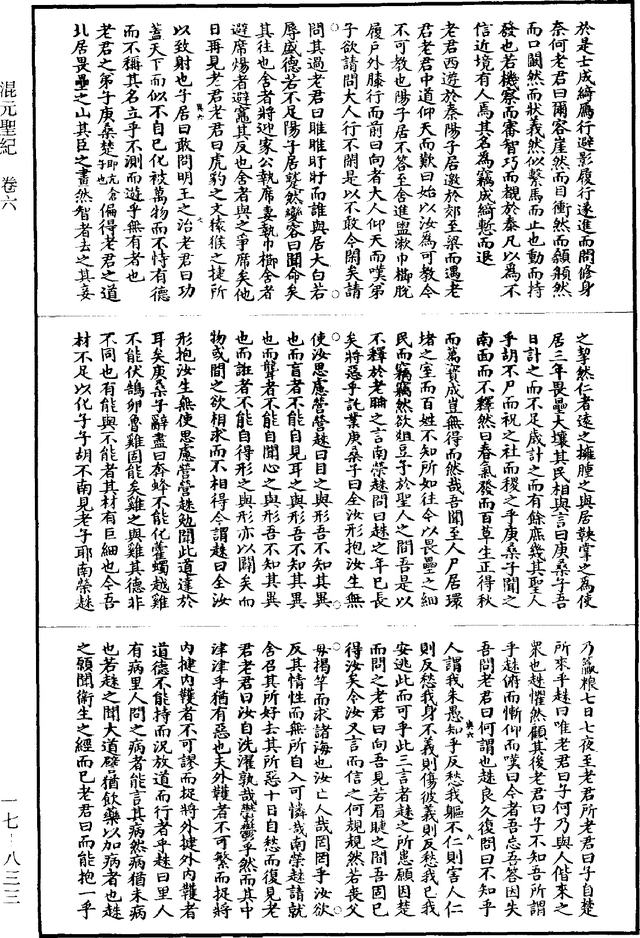 混元聖紀　卷六
一七－八三三
於是士成綺鴈行避影履行遂進而問修身
奈何老君曰爾容崖然而目衝然而顙頯然
而口闞然而狀義然似繫馬而止也動而持
發也若機察而審智巧而覩於泰凡以為不
信近境有人焉其名為竊成綺慙而退
老君西遊於秦陽子居邀於郊至梁而遇老
君老君中道仰天而歎曰始以汝為可教今
不可教也陽子居不答至舍進盥漱巾櫛脫
履戶外膝行而前曰向者大人仰天而嘆弟
子欲請問大人行不閑是以不敢今閑矣請
問其過老君曰睢睢盱盱而誰與居大白若
辱盛德若不足陽子居蹵然變容曰聞命矣
其往也舍者將迎家公執席妻執巾櫛舍者
避席煬者避竈其反也舍者與之爭席矣他
日再見老君老君曰虎豹之文猿猴之捷所
以致射也子居曰敢問明王之治老君曰功
蓋天下而似不自已化被萬物而不恃有德
而不稱其名立乎不測而遊乎無有者也
老君之弟子庚桑楚即亢倉子也偏得老君之道
北居畏壘之山其臣之畫然智者去之其妾
之挈然仁者遠之擁腫之與居鞅掌之為使
居三年畏壘大壤其民相與言曰庚桑子吾
日計之而不足歲計之而有餘庶幾其聖人
乎胡不尸而祝之社而稷之乎庚桑子聞之
南面而不釋然曰春氣發而百草生正得秋
而萬寶成豈無得而然哉吾聞至人尸居環
堵之室而百姓不知所如往今以畏壘之細
民而竊竊然欲俎豆予於聖人之間吾是以
不釋於老聃之言南榮趎問曰趎之年已長
矣將惡乎託業庚桑子曰全汝形抱汝生無
使汝思慮營營趎曰目之與形吾不知其異
也而盲者不能自見耳之與形吾不知其異
也而聾者不能自聞心之與形吾不知其異
也而誑者不能自得形之與形亦以闢矣而
物或間之欲相求而不相得今謂趎曰全汝
形抱汝生無使思慮營營趎勉聞此道達於
耳矣庚桑子辭盡曰奔蜂不能化藿蠋越雞
不能伏鵠卵魯雞固能矣雞之與雞其德非
不同也有能與不能者其材有巨細也今吾
材不足以化子子胡不南見老子耶南榮趎
乃贏粮七日七夜至老君所老君曰子自楚
所來乎趎曰唯老君曰子何乃與人偕來之
眾也趎懼然顧其後老君曰子不知吾所謂
乎趎俯而慚仰而嘆曰今者吾忘吾答因失
吾問老君曰何謂也趎良久復問曰不知乎
人謂我朱愚知乎反愁我軀不仁則害人仁
則反愁我身不義則傷彼義則反愁我已我
安逃此而可乎此三言者趎之所患願因楚
而問之老君曰向吾見若眉睫之間吾固已
得汝矣今汝又言而信之何規規然若喪父
母揭竿而求諸海也汝亡人哉罔罔乎汝欲
反其情性而無所自入可憐哉南榮趎請就
舍召其所好去其所惡十日自愁而復見老
君老君曰汝自洗濯孰哉鬱鬱乎然而其中
津津乎猶有惡也夫外韄者不可繁而捉將
內揵內韄者不可謬而捉將外揵外內韄者
道德不能持而況放道而行者乎趎曰里人
有病里人問之病者能言其病然病猶未病
也若趎之聞大道譬猶飲藥以加病者也趎
之願聞衛生之經而已老君曰而能抱一乎